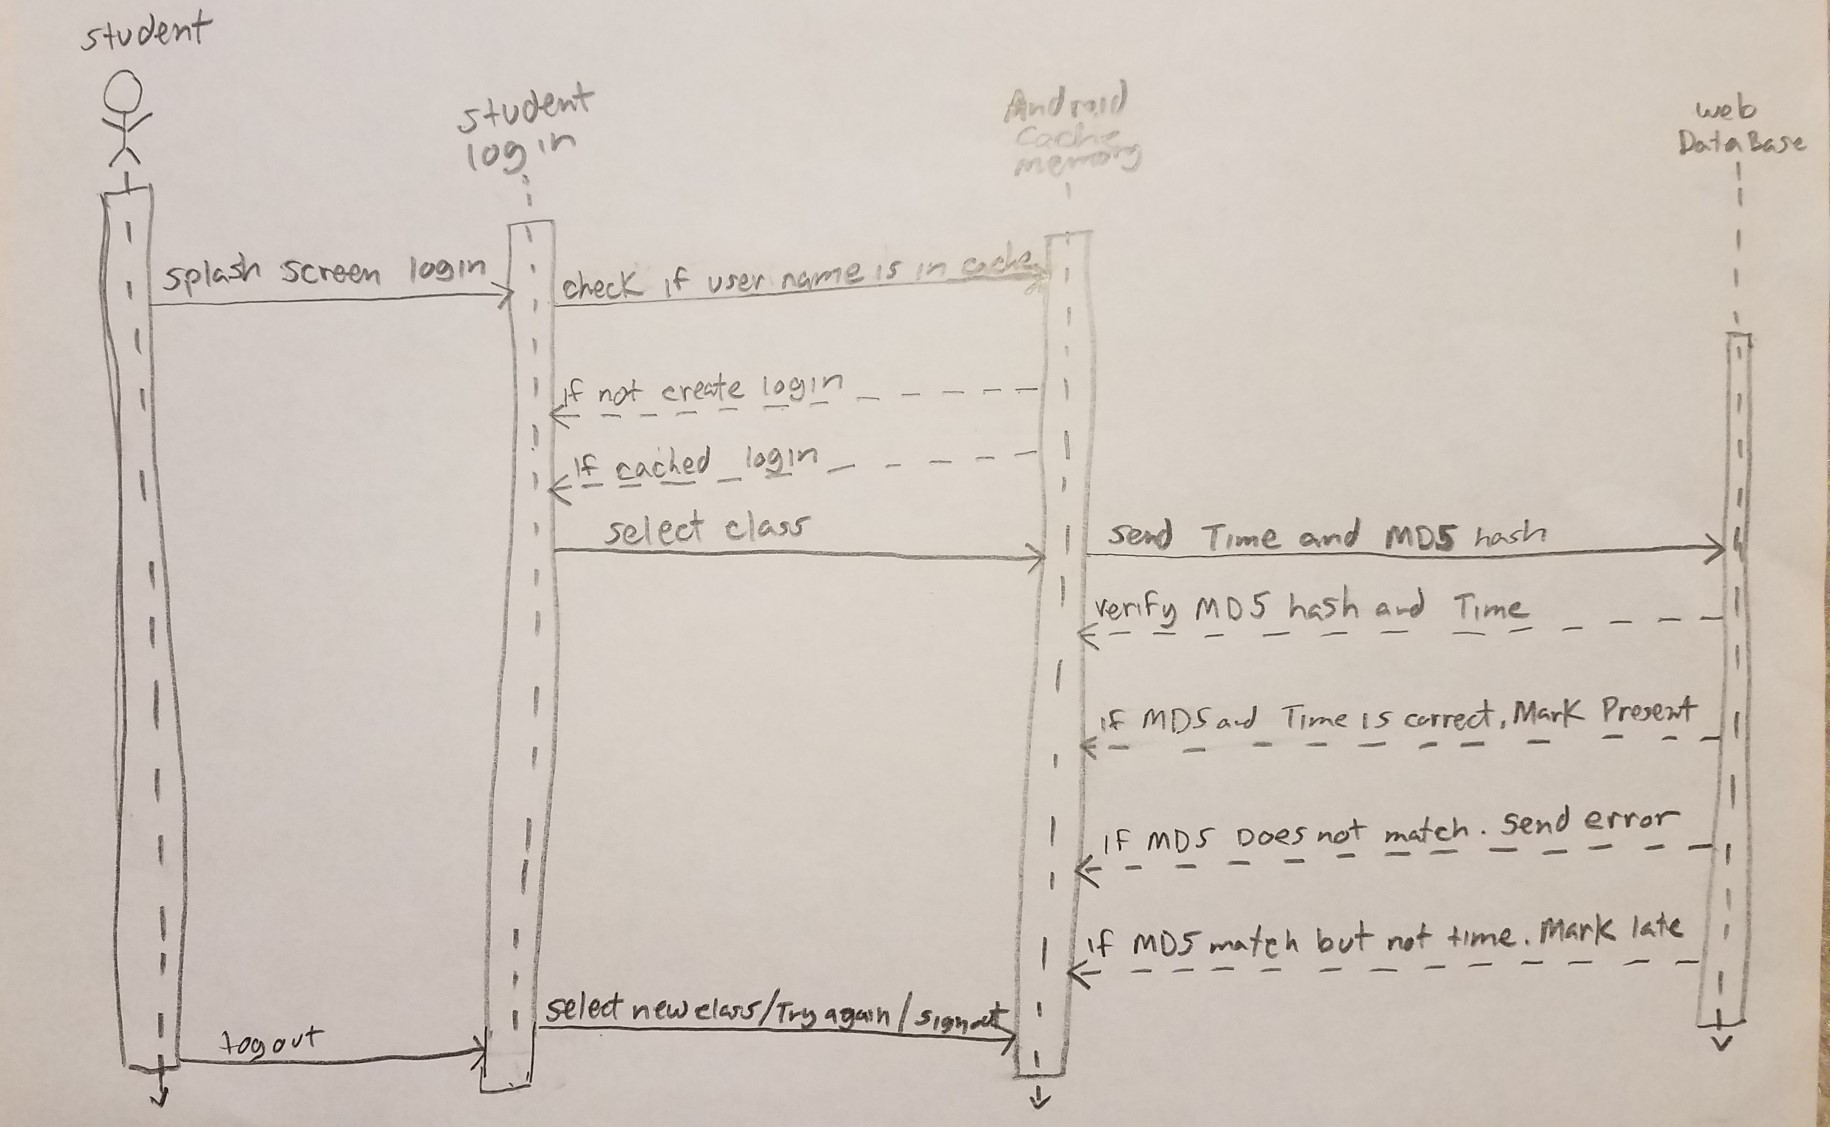 student
student
login
Android
cache
memory
web
DataBase
splash screen login
check if user name is in cache
if not create login
if cached login
select class
send Time and MD5 hash
verify MD5 hash and Time
if MD5 and Time is correct, Mark Present
if MD5 Does not match. send error
if MD5 match but not time. Mark late
select new class/Try again/signout
logout